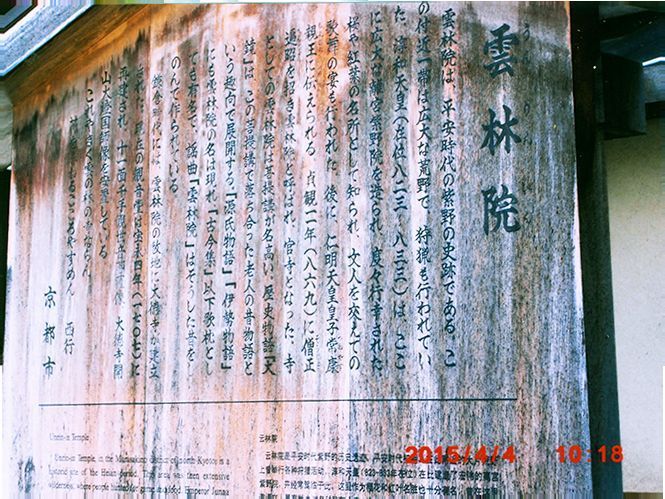 雲林院
雲林院は、平安時代の紫野の史跡である。こ
の付近一帯は広大な荒野で、狩猟も行われてい
た。淳和天皇(在位八二三〜八三三)は、ここ
に広大な離宮紫野院を造られ、度々行幸された
桜や紅葉の名所として知られ、文人を交えての
歌舞の宴も行われた。後に、仁明天皇皇子常康
親王に伝えられる。貞観十一年(八六九)に僧正
遍昭を招き雲林院と呼ばれ、官寺となった。寺
としての雲林院は菩提講が名高い。歴史物語「大
鏡」は、この菩提講で落ち合った老人の昔物語と
いう趣向で展開する。「源氏物語」「伊勢物語」
にも雲林院の名は現れ「古今集」以下歌枕とし
ても有名で、謡曲「雲林院」はそうした昔をし
のんで作られている。
鎌倉時代には、雲林院の敷地に大徳寺が建立
された。現在の観音堂は宝永四年(一七〇七)に
再建され、十一面千手観音 大徳寺開
山大燈国師像を安置している。
これやきく雲の林の寺ならん
花を るこころやすめん 西行
京都市
Unrin-in Temple
Unrin-in Temple, in the Murasakino district of north Kyoto, is a
historic site of the Heian period. This area was then extensive
wilderness, where people hunted for game as a food. Emperor Junna
云林院
云林院是平安时代紫野的历史遗迹。平安时代
上曾举行各种狩猎活动。淳和天皇(823-833年在位)在此建造了宏伟的离宫
2015/4/4 10:18